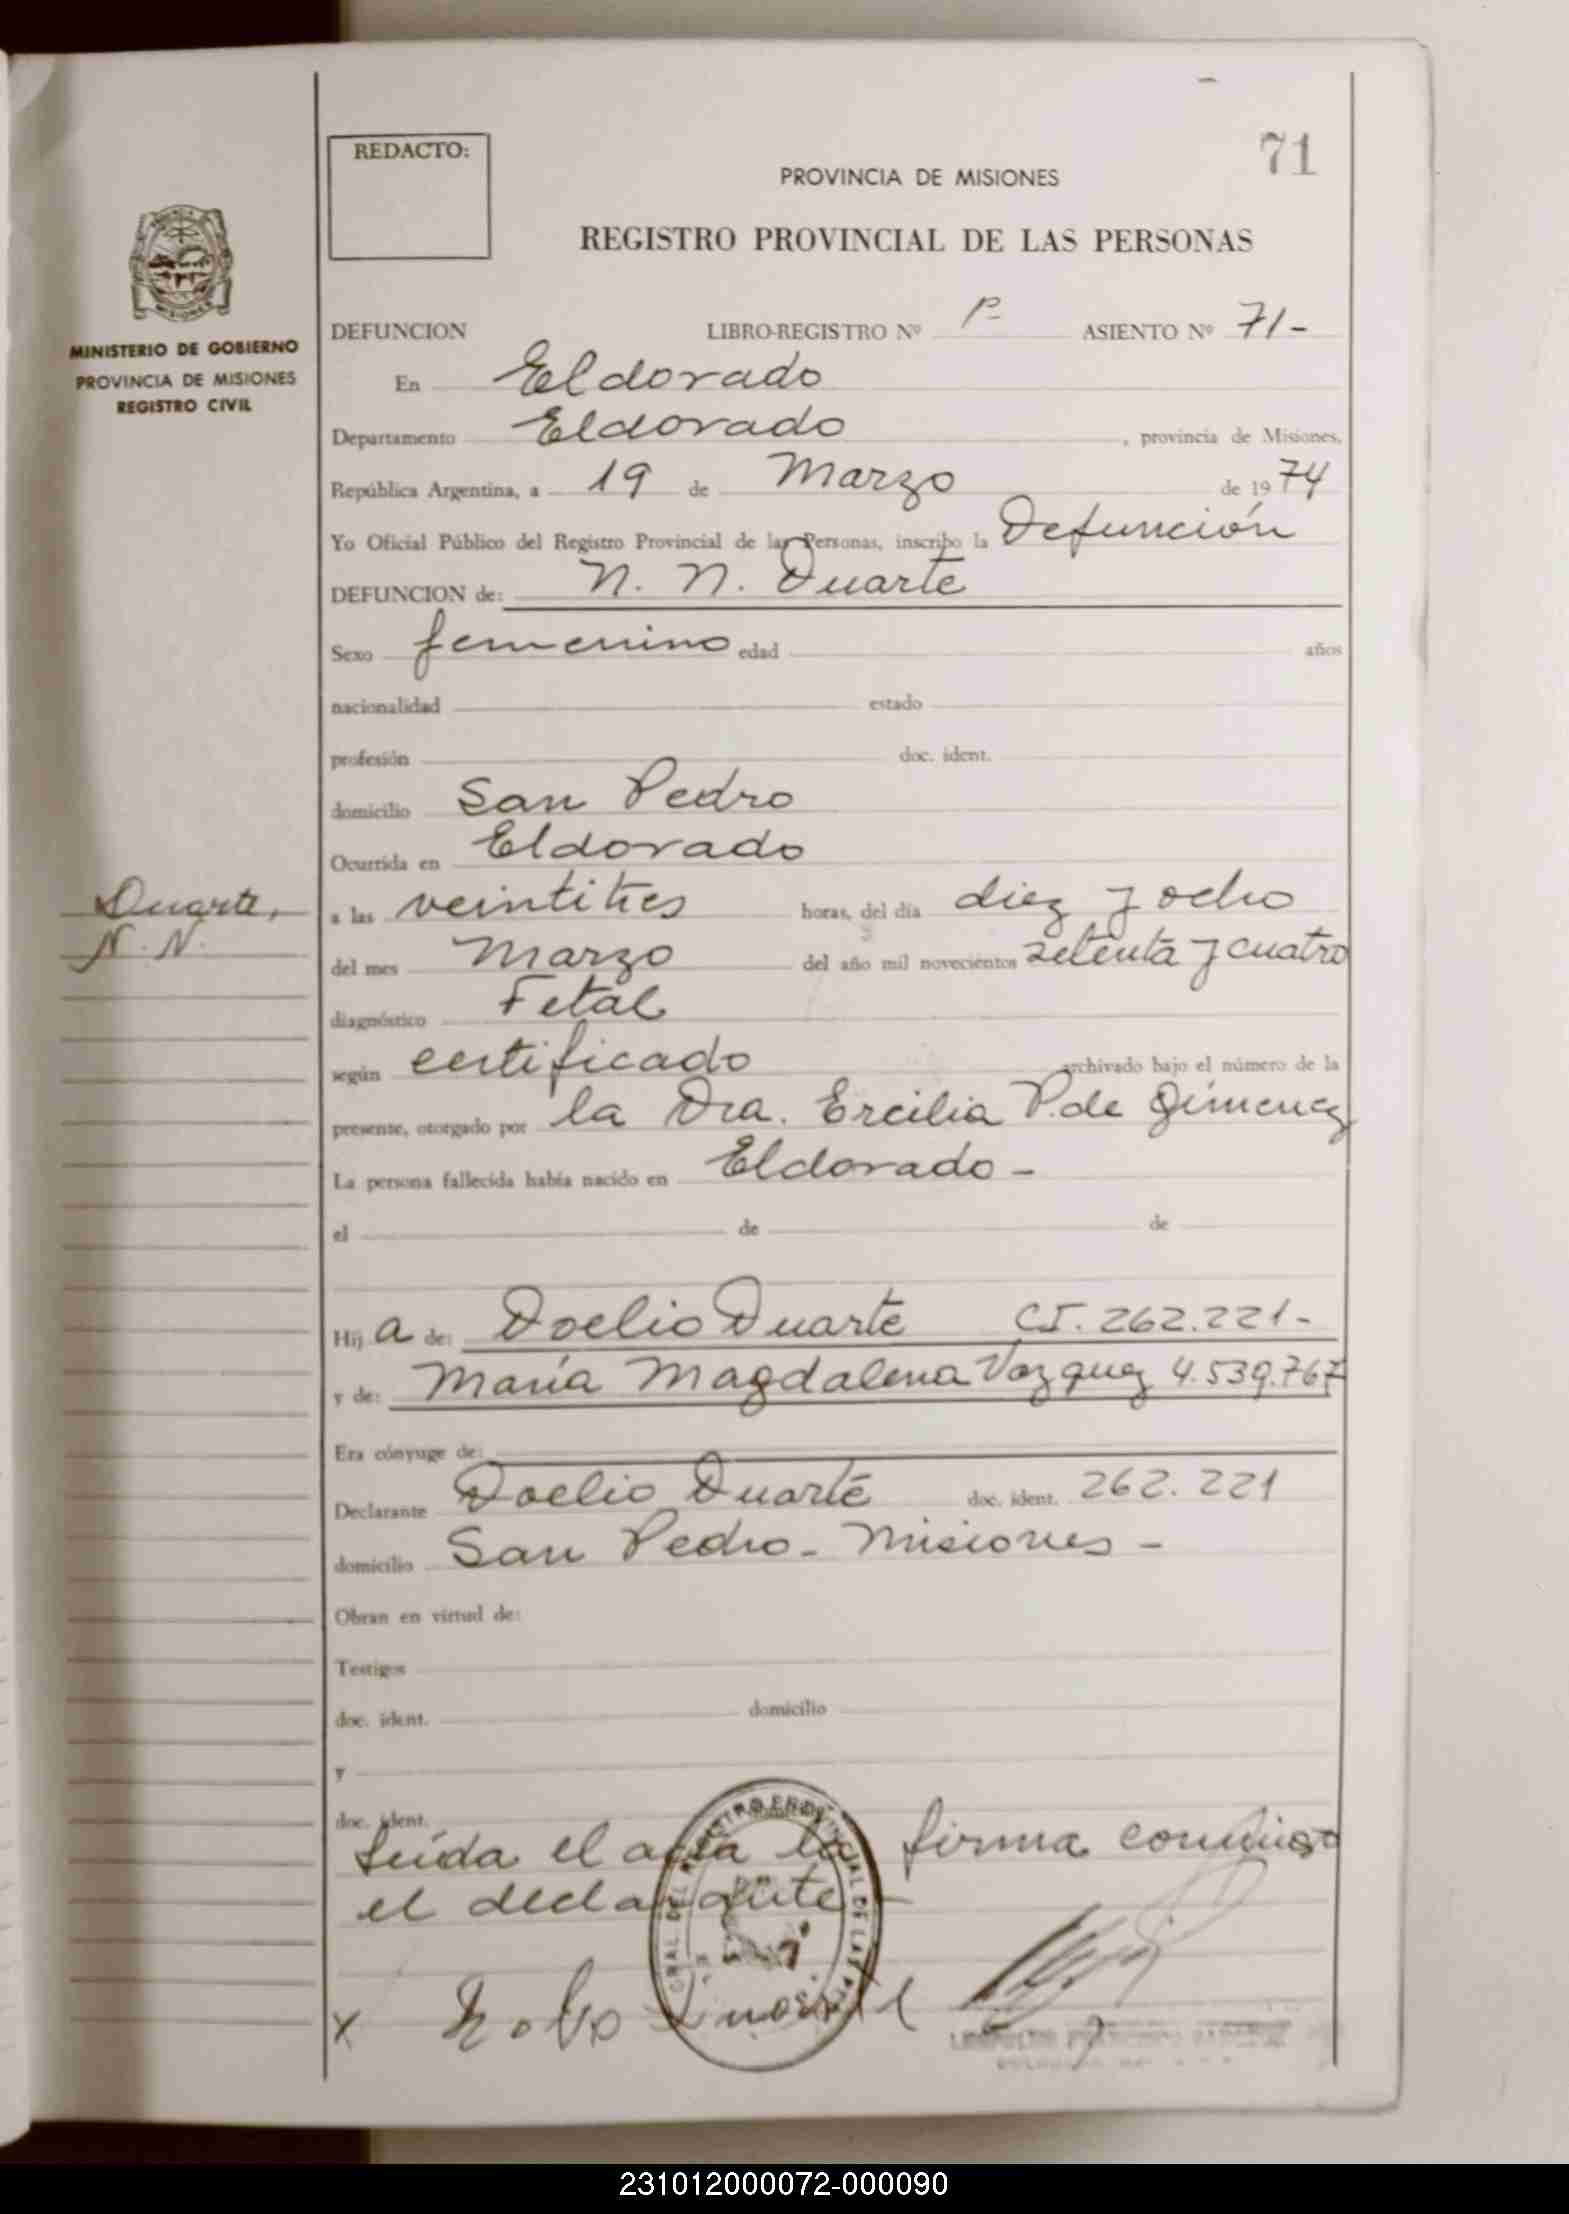 71
REDACTO:
PROVINCIA DE MISIONES
REGISTRO PROVINCIAL DE LAS PERSONAS
MINISTERIO DE GOBIERNO
PROVINCIA DE MISIONES
REGISTRO CIVIL
DEFUNCION LIBRO-REGISTRO Nº 1º ASIENTO Nº 71-
En Eldorado
Departamento Eldorado, provincia de Misiones,
República Argentina, a 19 de Marzo de 1974
Yo Oficial Público del Registro Provincial de las Personas, inscribo la Defunción
DEFUNCION de: N. N. Duarte
Sexo femenino edad años
nacionalidad estado
profesión doc. ident.
domicilio San Pedro
Ocurrida en Eldorado
Duarte,
N. N.
a las veintitres horas, del día diez y ocho
del mes Marzo del año mil novecientos setenta y cuatro
diagnóstico Fetal
según certificado archivado bajo el número de la
presente, otorgado por la Dra. Ercilia P. de Gimenez
La persona fallecida había nacido en Eldorado -
el de de
Hij a de: Doelio Duarte CI. 262.221-
y de: María Magdalena Vazquez 4.539.767
Era cónyuge de:
Declarante Doelio Duarte doc. ident. 262.221
domicilio San Pedro - Misiones -
Obran en virtud de:
Testigos
doc. ident. domicilio
y
doc. ident.
Leída el acta la firma conmigo
el declarante -
x
231012000072-000090